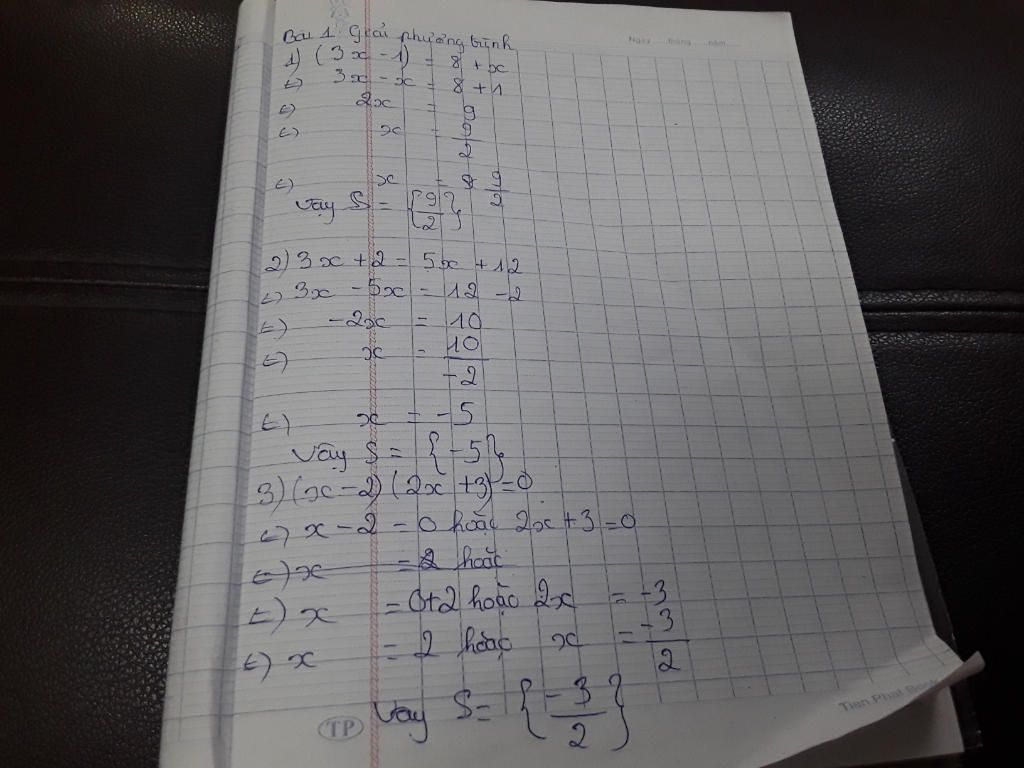 Ngày tháng năm
Bài 1: Giải phương trình
1) (3x - 1) = 8 + x
<=> 3x - x = 8 + 1
<=> 2x = 9
<=> x = 9/2
<=> x = 9/2
Vậy S = {9/2}
2) 3x + 2 = 5x + 12
<=> 3x - 5x = 12 - 2
<=> -2x = 10
<=> x = 10/-2
<=> x = -5
Vậy S = {-5}
3) (x - 2) (2x + 3) = 0
<=> x - 2 = 0 hoặc 2x + 3 = 0
<=> x = 2 hoặc
<=> x = 0+2 hoặc 2x = -3
<=> x = 2 hoặc x = -3/2
Vậy S = {-3/2}
TP
Tien Phat Book